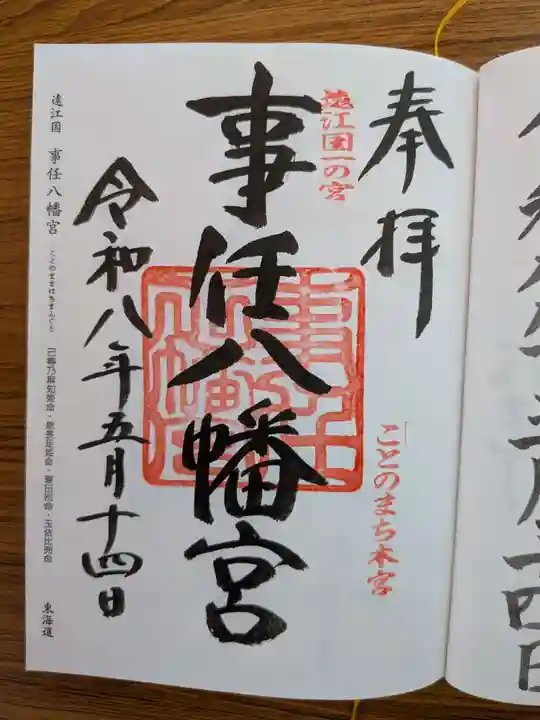 奉拝
遠江国一の宮
ことのまち本宮
事任八幡宮
事任八幡宮
令和八年五月十四日
遠江国 事任八幡宮 ことのままはちまんぐう 己等乃麻知姫命・息長足姫命・誉田別命・玉依比売命 東海道